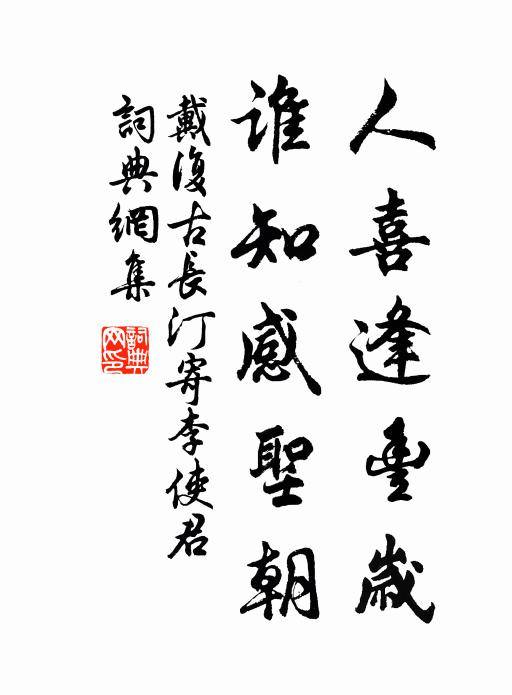 人喜逢豊歲
谁知感聖朝
戴復古長汀寄李使君
詞典網集
詞典网印